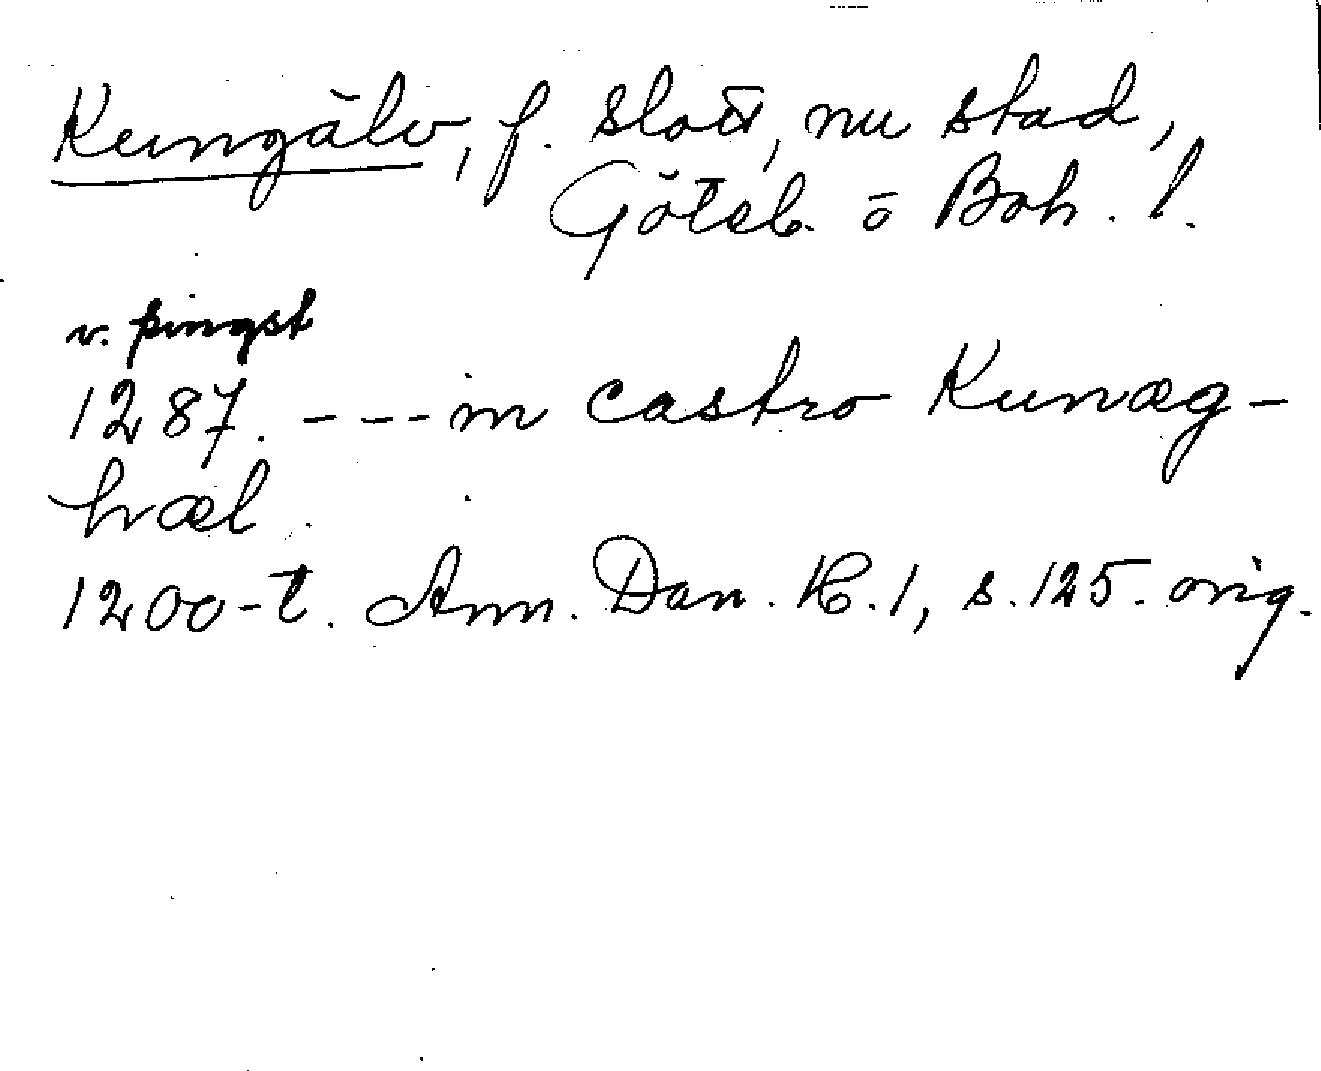 Kungälv, f. slott, nu stad,
Göteb. o Boh. l.
v. pingst
1287. --- in castro Kunæg-
hræl.
1200-t. Ann. Dan. K. 1, s. 125. orig.